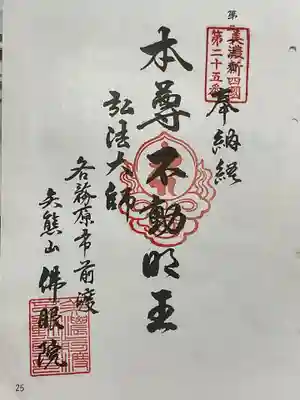 第
美濃新四國
第二十五番
奉納経
本尊不動明王
弘法大師
各務原市前渡
矢熊山佛眼院
25